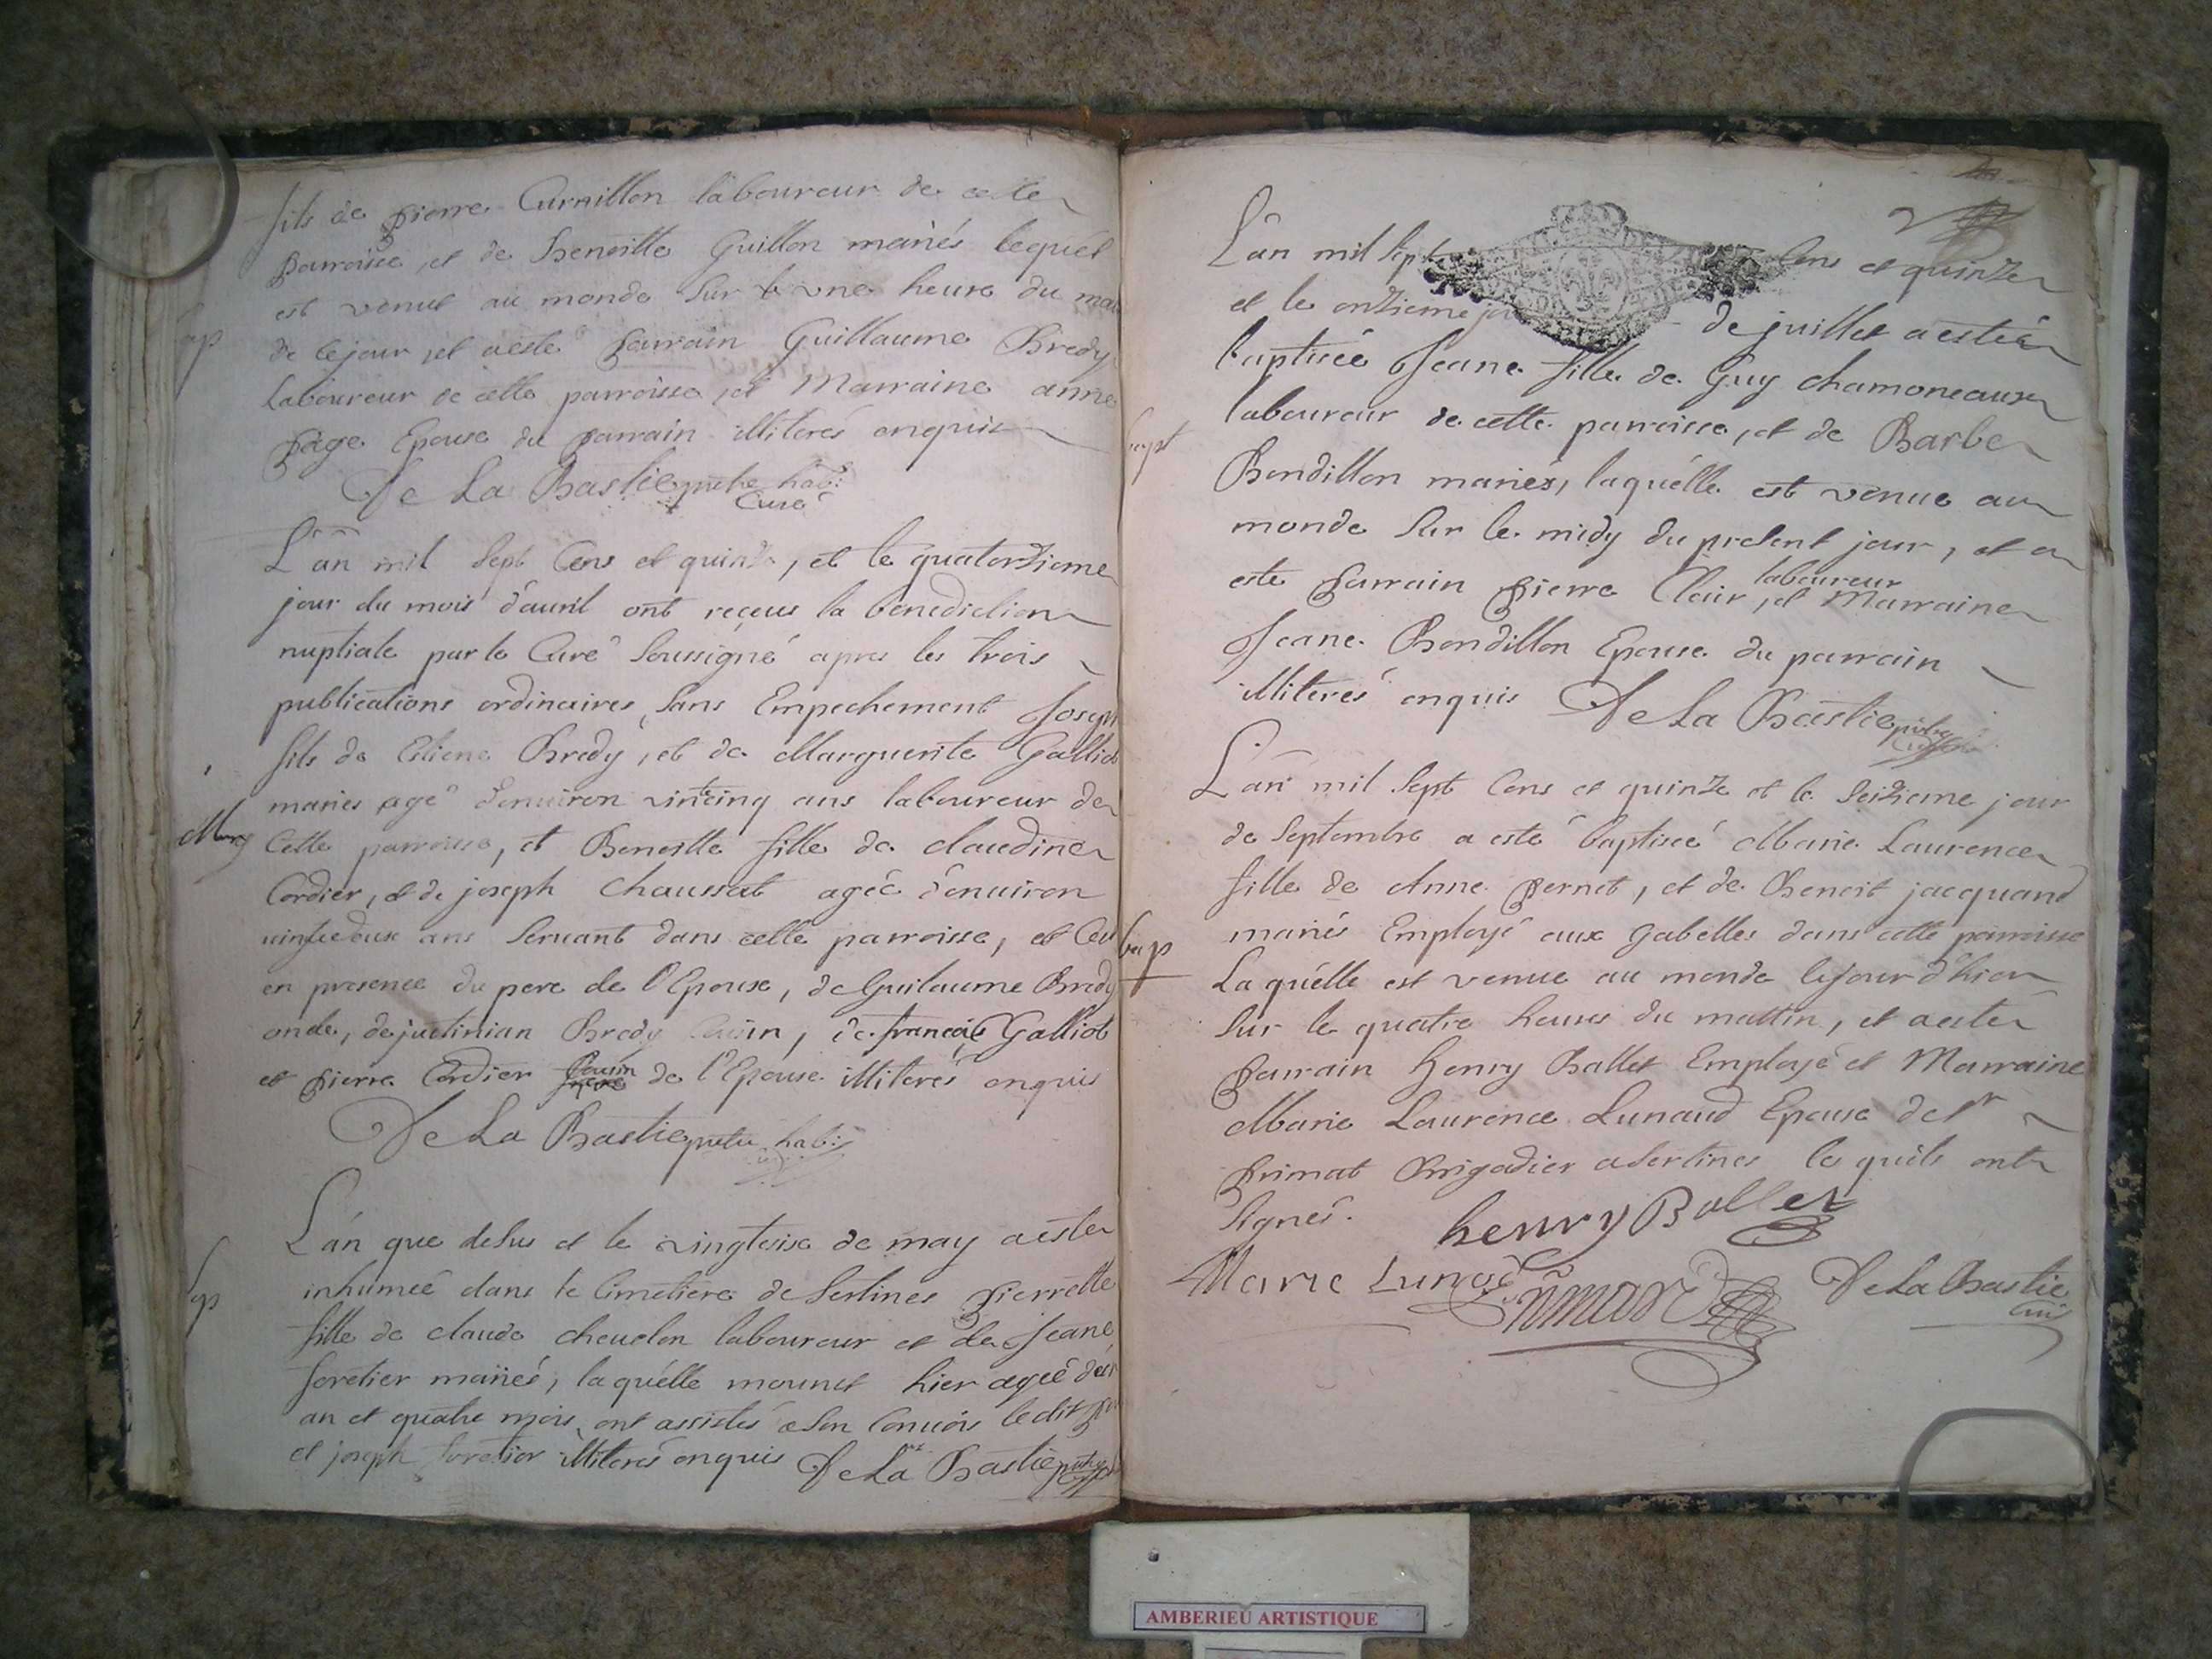 fils de pierre Curnillon laboureur de cette
parroisse, et de benoitte Guillon mariés lequel
est venut au monde sur une heure du
bap
de ce jour, et a esté parrain Guillaume Bredy
laboureur de cette parroisse, et Marraine anne
page Epouse du parrain illiterés enquis
De La Bastie prêtre hab:
Curé
L'an mil sept Cens et quinze, et le quatorzieme
jour du mois d'auril ont reçeus la benediction
nuptiale par le Curé soussigné apres les trois
publications ordinaires, sans Empechement Joseph
fils de Etiene Bredy, et de Marguerite Galliot
mariés agé d'enuiron vintcinq ans laboureur de
Cette parroisse, et Benoitte fille de claudine
Cordier, et de joseph Chaussat agée d'enuiron
ans seruant dans cette parroisse, et
en presence du pere de l'Epouse, de Guilaume Bredy
oncle, de justinian Bredy, de françois Galliot
et pierre Cordier Cousin de l'Epouse illiterés enquis
De La Bastie prêtre hab:
L'an que desus et le de may a esté
inhumeé dans le Cimetiere de Sertines pierrette
fille de claude cheuelon laboureur et de Jeane
foretier mariés, la quélle mourut hier ageé d'un
an et quatre mois, ont assistés a son Conuois ledit
et joseph foretier illiterés enquis De La Bastie prêtre
L'an mil sept Cens et quinze
et le onzieme de juillet a esté
baptisée Jeane fille de Guy chamoneaux
bapt
laboureur de cette parroisse, et de Barbe
Bondillon mariés, laquélle est venue au
monde sur le midy du present jour, et a
laboureur
esté parrain pierre Clair, et Marraine
Jeane Bondillon Epouse du parrain
illiterés enquis De La Bastie prêtre
L'an mil sept Cens et quinze et le seizieme jour
de septembre a esté baptisée Marie Laurence
fille de Anne pernet, et de Benoit jacquand
bap
mariés Employé aux gabelles dans cette parroisse
La quélle est venue au monde le jour d'hier
sur le quatre heures du mattin, et a esté
parrain henry Ballet Employé et Marraine
Marie Laurence Lunaud Epouse de sr
primat Brigadier a Sertines les quéls ont
signés. henry Ballet
Marie Lunod De La Bastie
Curé
AMBERIEU ARTISTIQUE